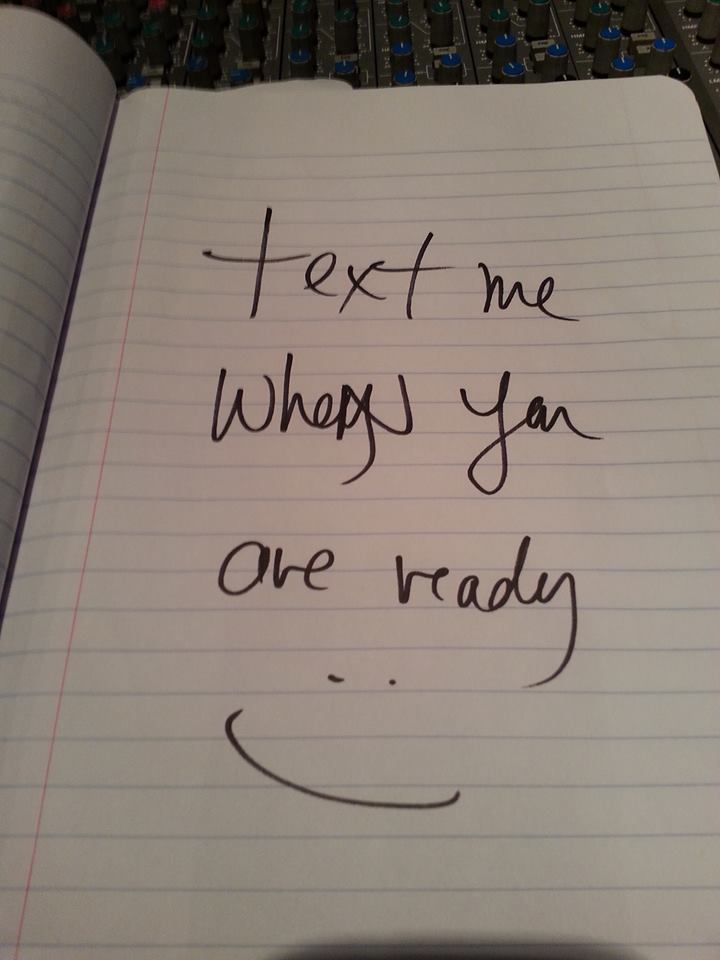 text me
when you
are ready